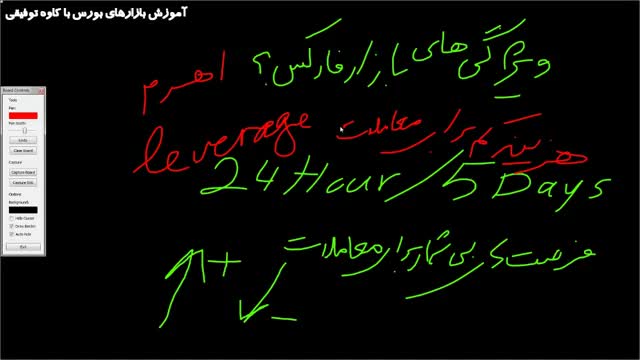 آموزش بازارهای بورس با کاوه توفیقی
ویژگی های بازار فارکس؟ اهرم
هزینه کم برای معاملات leverage
24 Hour/5 Days
فرصت های بی شمار برای معاملات
+
-
Board Controls
Tools
Pen:
Pen Width:
Undo
Clear Board
Capture
Capture Board
Capture BG
Options
Background:
Hide Cursor
Draw Border
Auto-Hide
Exit